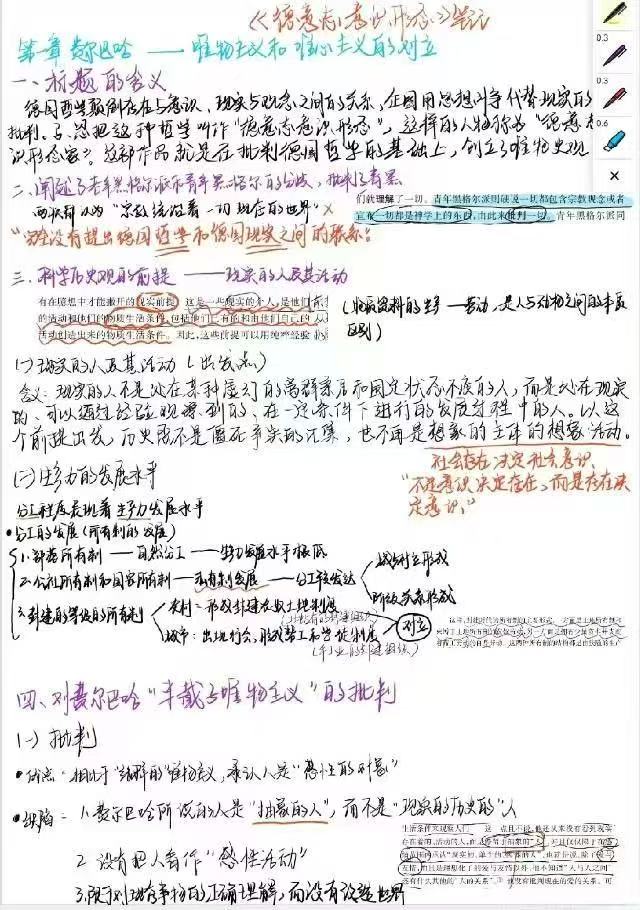 《德意志意识形态》笔记
第一章 费尔巴哈 —— 唯物主义和唯心主义的对立
一、标题的含义
德国哲学颠倒存在与意识、现实与观念之间的关系,企图用思想斗争代替现实的
批判。马、恩把这种哲学叫作“德意志意识形态”,这样的人物称为“德意志
识形态家”。这部作品就是在批判德国哲学的基础上,创立了唯物史观
二、阐述了老年黑格尔派和青年黑格尔的分歧,批判了青黑
们就理解了一切。青年黑格尔派则硬说一切都包含宗教观念或者
宣布一切都是神学上的东西,由此来批判一切。青年黑格尔派同
两派都认为“宗教统治着一切现存的世界”×
“没有提出德国哲学和德国现实之间的联系”
三、科学历史观的前提 —— 现实的人及其活动
有在臆想中才能撇开的现实前提。这是一些现实的个人,是他们
的活动和他们的物质生活条件,包括他们已有的和由他们自己的
活动创造出来的物质生活条件。因此,这些前提可以用纯粹经验
(物质资料的生产——劳动,是人与动物之间的本质
区别)
(一)现实的人及其活动(出发点)
含义:现实的人不是处在某种虚幻的离群索居和固定状态中的人,而是处在现实
的、可以通过经验观察到的、在一定条件下进行的发展过程中的人。以这
个前提出发,历史既不是僵死事实的汇集,也不再是想象的主体的想象活动。
社会存在决定社会意识
“不是意识决定存在,而是存在决
定意识。”
(二)生产力的发展水平
分工程度表现着生产力发展水平
•分工的发展(所有制的发展)
1.部落所有制——自然分工——生产力发展水平极低
2.公社所有制和国家所有制——私有制发展——分工较发达
城乡对立形成
阶级关系形成
3.封建的等级的所有制
农村:形成封建农业土地制度
城市:出现行会,形成帮工和学徒制度
(手工业的封建组织)
对立
四、对费尔巴哈“半截子唯物主义”的批判
(一)批判
•优点:相比于“纯粹的”唯物主义,承认人是“感性的对象”
•缺陷:1.费尔巴哈所说的人是“抽象的人”,而不是“现实的历史的”人
2.没有把人看作“感性活动”
3.限于对现存事物的正确理解,而没有改造世界
0.3
0.3
0.6
×